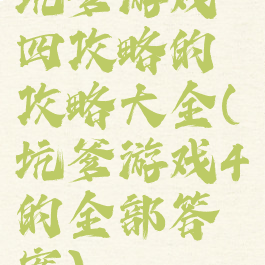 坑爹游戏
四攻略的
攻略大全(
坑爹游戏4
的全部答
案)